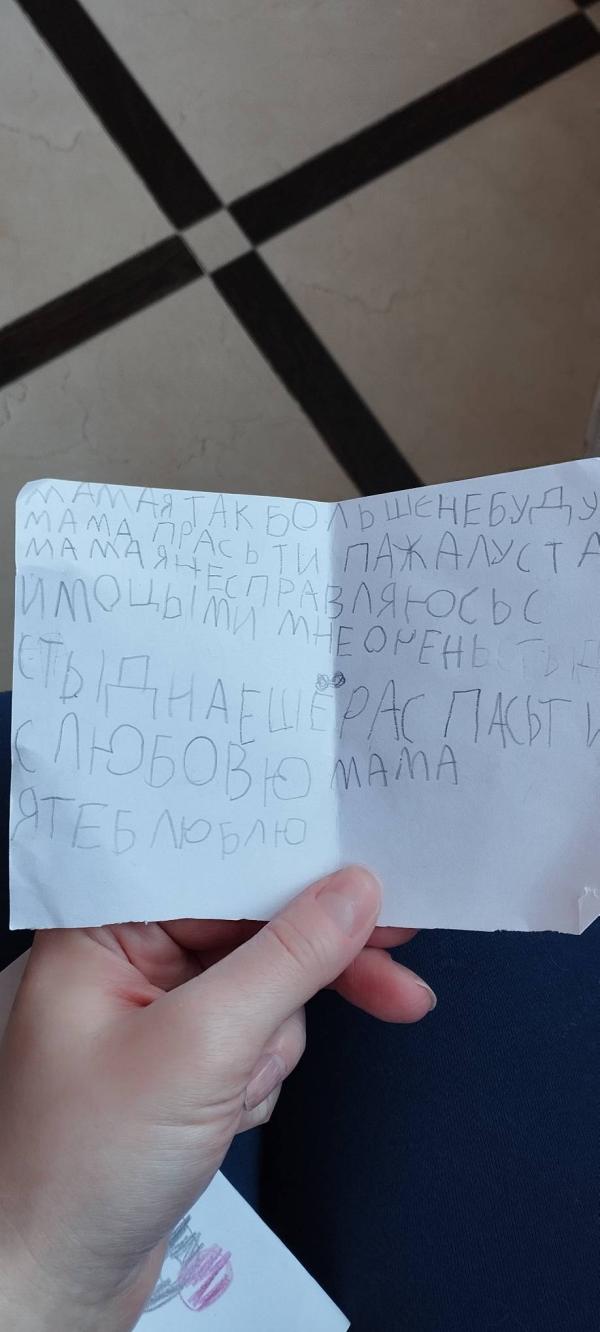 МАМАЯ ТАК БОЛЬШЕНЕБУДУ
МАМА ПРАСЬТИ ПАЖАЛУСТА
МАМАЯНЕСПРАВЛЯЮСЬ С
ИМОЦЫЯМИ МНЕ ОЧЕНЬ СТЫД
СТЫДНАЕШЕ РАС ПАСЬТИ
С ЛЮБОВЮ МАМА
ЯТЕБ ЛЮБЛЮ